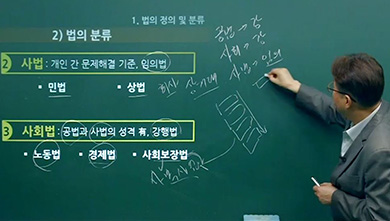 1. 법의 정의 및 분류
2) 법의 분류
2 사법 : 개인 간 문제해결 기준, 임의법
▪ 민법 ▪ 상법
3 사회법 : 공법과 사법의 성격 有, 강행법
▪ 노동법 ▪ 경제법 ▪ 사회보장법
공법 → 강
사회 → 강
사법 → 임의
회사